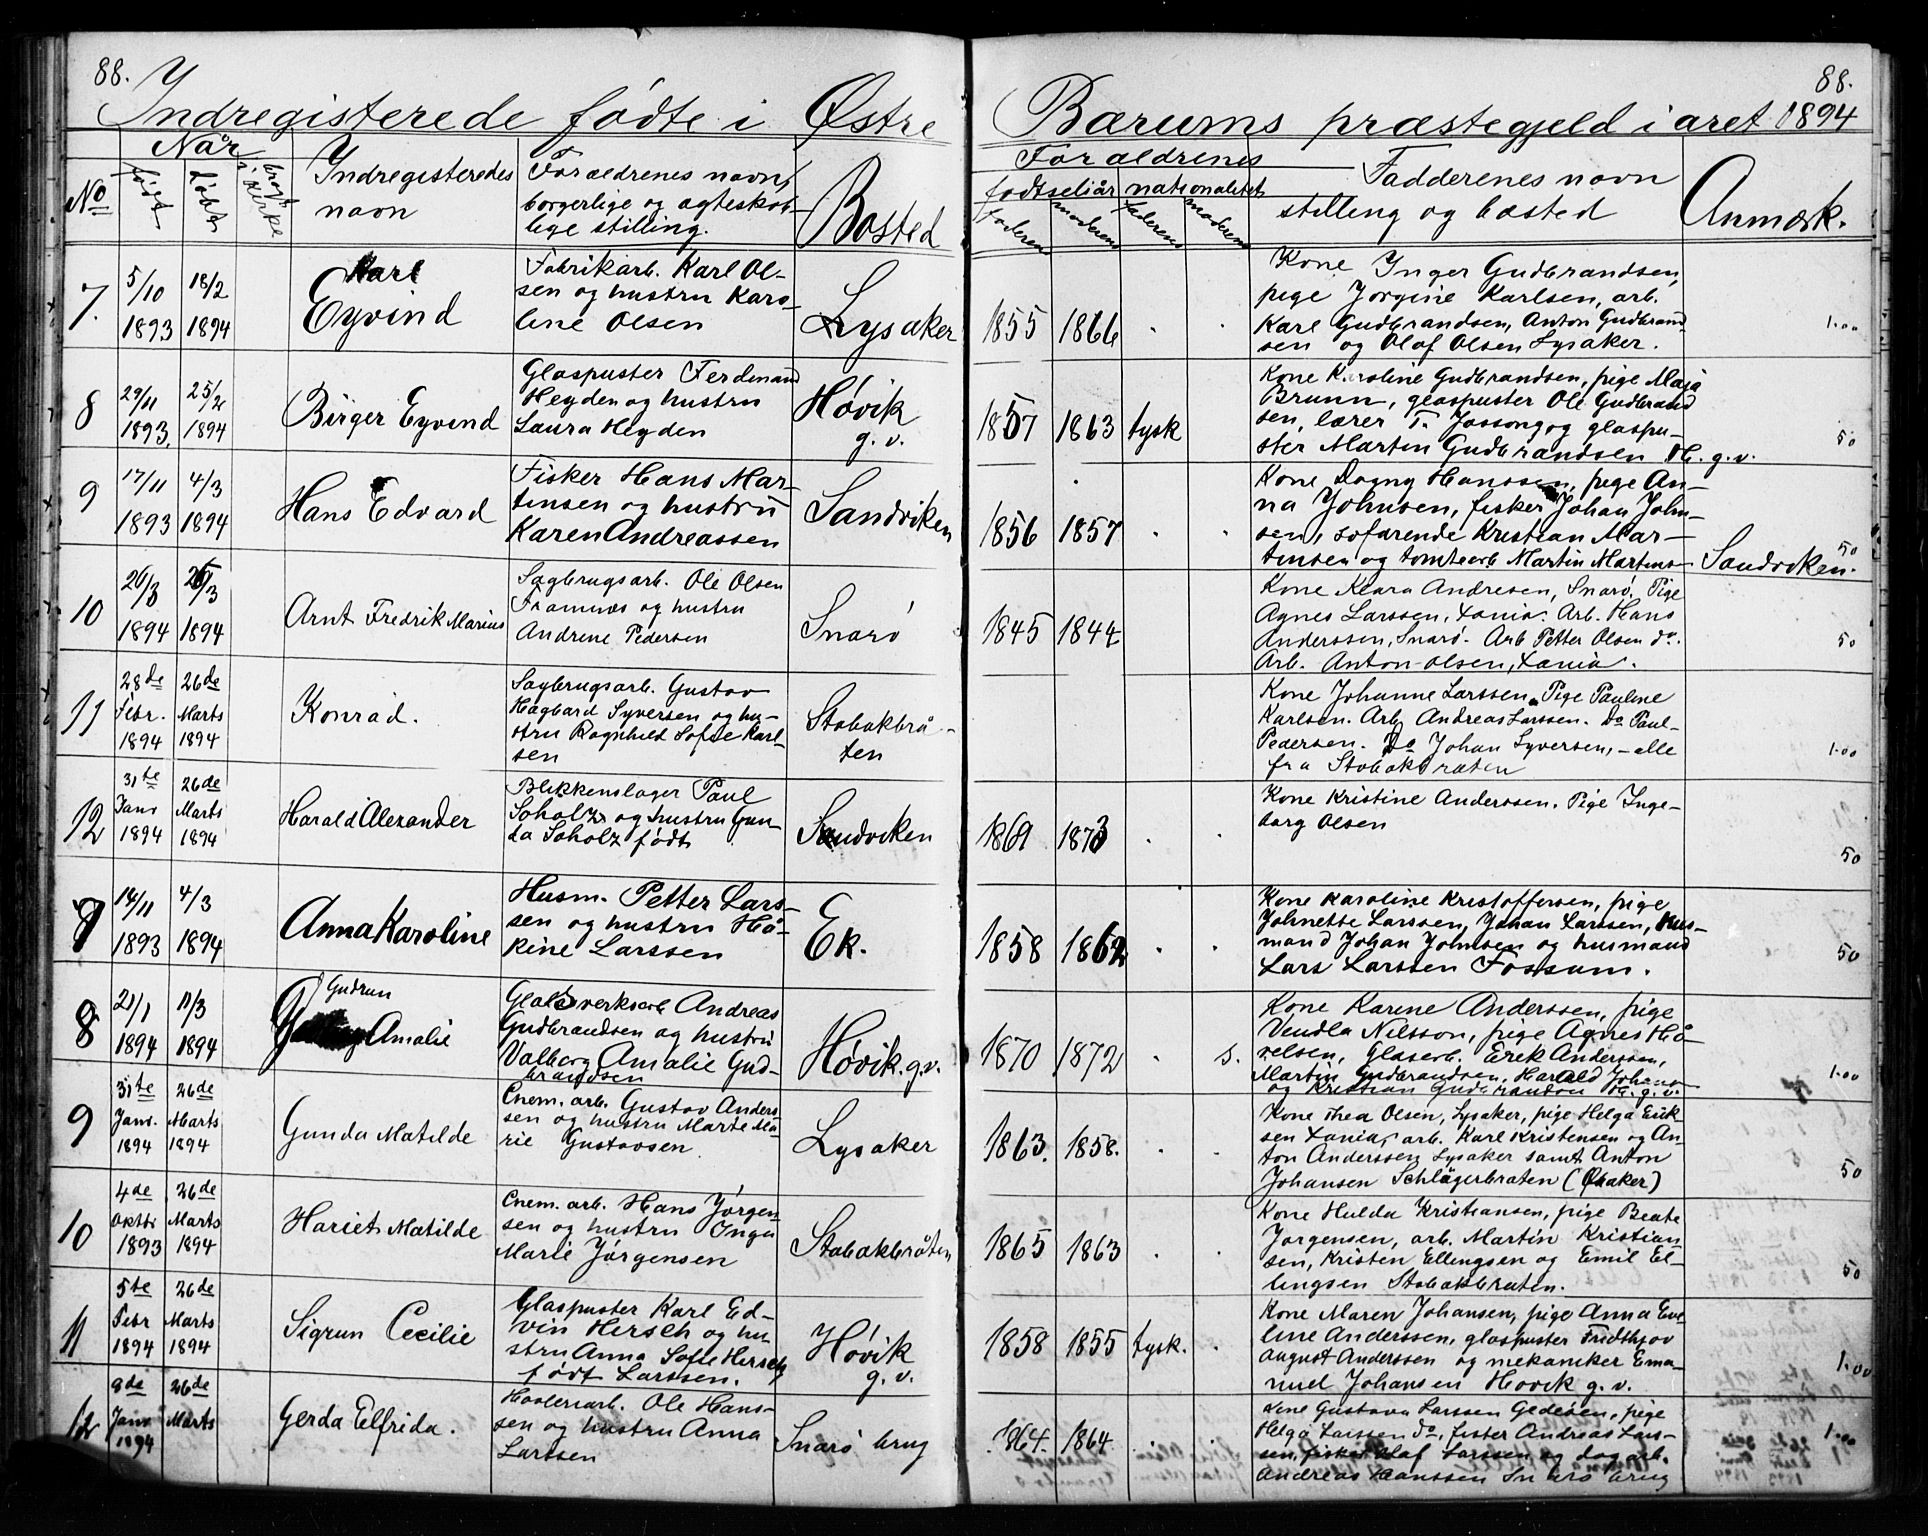 88.
88.
Indregisterede fødte i Østre Bærums præstegjeld i aret 1894
No
Når
født
døbt
bragt i kirke
Indregisteredes
navn
Forældrenes navn,
borgerlige og ægteskab-
lige stilling.
Bosted
Forældrenes
fødselsår nationalitet
faderens
moderens
faderens
moderens
Fadderenes navn
stilling og bosted
Anmærk.
7.
5/10
1893
18/2
1894
Karl
Eyvind
Fabrikarb. Karl Ol-
sen og hustru Karo-
line Olsen
Lysaker
1855 1866 . .
Kone Inger Gudbrandsen,
pige Jorgine Karlsen, arb.
Karl Gudbrandsen, Anton Gudbrand-
sen og Olaf Olsen Lysaker.
1.00
8
29/11
1893.
25/2
1894
Birger Eyvind
Glaspuster Ferdinand
Heyden og hustru
Laura Heyden
Høvik
g. v.
1857 1863 tysk
Kone Karoline Gudbrandsen, pige Maja
Brunn, glaspuster Ole Gudbrand
sen, lærer T. Jossong og glaspu-
ster Martin Gudbrandsen H. g. v.
50
9
17/11
1893
4/3
1894
Hans Edvard
Fisker Hans Mar-
tinsen og hustru
Karen Andreassen
Sandviken
1856 1857 . .
Kone Dagny Hanssen, pige An-
na Johnsen, fisker Johan John-
sen, sofarende Kristian Mar-
tinsen og tomtearb Martin Martins-
Sandviken.
50
10
26/3
1894
26/3
1894
Arnt Fredrik Marius
Sagbrugsarb. Ole Olsen
Framnæs og hustru
Andrene Pedersen
Snarø
1845 1844
Kone Klara Andresen, Snarø. Pige
Agnes Larssen, Xania. Arb. Hans
Anderssen, Snarø. Arb Petter Olsen do.
Arb. Anton Olsen, Xania.
50
11
28de
Febr.
1894
26de
Marts
1894
Konrad.
Sagbrugsarb. Gustav
Hagbard Syversen og hu-
stru Ragnhild Sofie Karl-
sen
Stabakbrå-
ten
Kone Johanne Larssen. Pige Pauline
Karlsen. Arb Andreas Larssen. Do Paul
Pedersen. Do Johan Syversen, - alle
fra Stabakbraten
1.00
12
31te
Janr
1894
26de
Marts
1894
Harald Alexander
Blikkenslager Paul
Soholz og hustru Gun-
da Soholz født
Sandviken
1869 1873 . .
Kone Kristine Anderssen. Pige Inge-
borg Olsen
50
7
14/11
1893
4/3
1894
Anna Karoline
Husm. Petter Lars-
sen og hustru Hå-
kine Larssen
Ek.
1858 1862 . .
Kone Karoline Kristoffersen, pige
Johnette Larssen, Johan Larssen, hus-
mand Johan Johnsen og husmand
Lars Larssen Fossum.
50
8
21/1
1894
11/3
1894
Gudrun
Amalie
Glasverksarb Andreas
Gudbrandsen og hustru
Valborg Amalie Gud-
brandsen
Høvik. g.v.
1870 1872 . s.
Kone Karine Anderssen, pige
Vendla Nilsson, pige Agnes Hå-
relsen, Glasarb. Erik Anderssen,
Martin Gudbrandsen, Harald Johans-
og Kristian Gudbrandsen H. g. v.
1.00
9
31te
Janr.
1894
26de
Marts
1894
Gunda Matilde
Cnem. arb. Gustav Anders-
sen og hustru Marte Ma-
rie Gustavsen
Lysaker
1863. 1858. . .
Kone Thea Olsen, Lysaker, pige Helga Erik-
sen Xania, arb. Karl Kristensen og An-
ton Anderssen Lysaker samt Anton
Johansen Schlägerbraten (Øraker)
50
10
4de
Oktbr
1893
26de
Marts
1894
Hariet Matilde
Cnem. arb. Hans Jørgen-
sen og hustru Inga
Marie Jørgensen
Stabakbråten
1865 1863 . .
Kone Hulda Kristiansen, pige Beate
Jørgensen, arb. Martin Kristian
sen, Kristen Ellingsen og Emil El-
lingsen Stabakbraten.
50
11
5te
Febr
1894
26de
Marts
1894
Sigrun Cecilie
Glaspuster Karl Ed-
vin Hersch og hu
stru Anna Sofie Hersch
født Larssen.
Høvik
g. v.
1858 1855 tysk. .
Kone Maren Johansen, pige Anna Eve
line Anderssen, glaspuster Fridthjov
August Anderssen og mekaniker Ema-
nuel Johansen Høvik g. v.
1.00
12
9de
Janr
1894
26de
Marts
Gerda Elfrida.
Høvleriarb. Ole Hans-
sen og hustru Anna
Larssen
Snarø brug
1864. 1864 . .
Kone Gustava Larssen Gedeøen, pige
Helga Larssen do, fisker Andreas Lars-
sen, fisker Olaf Larssen og dag arb.
Andreas Hanssen Snarø brug
1.00